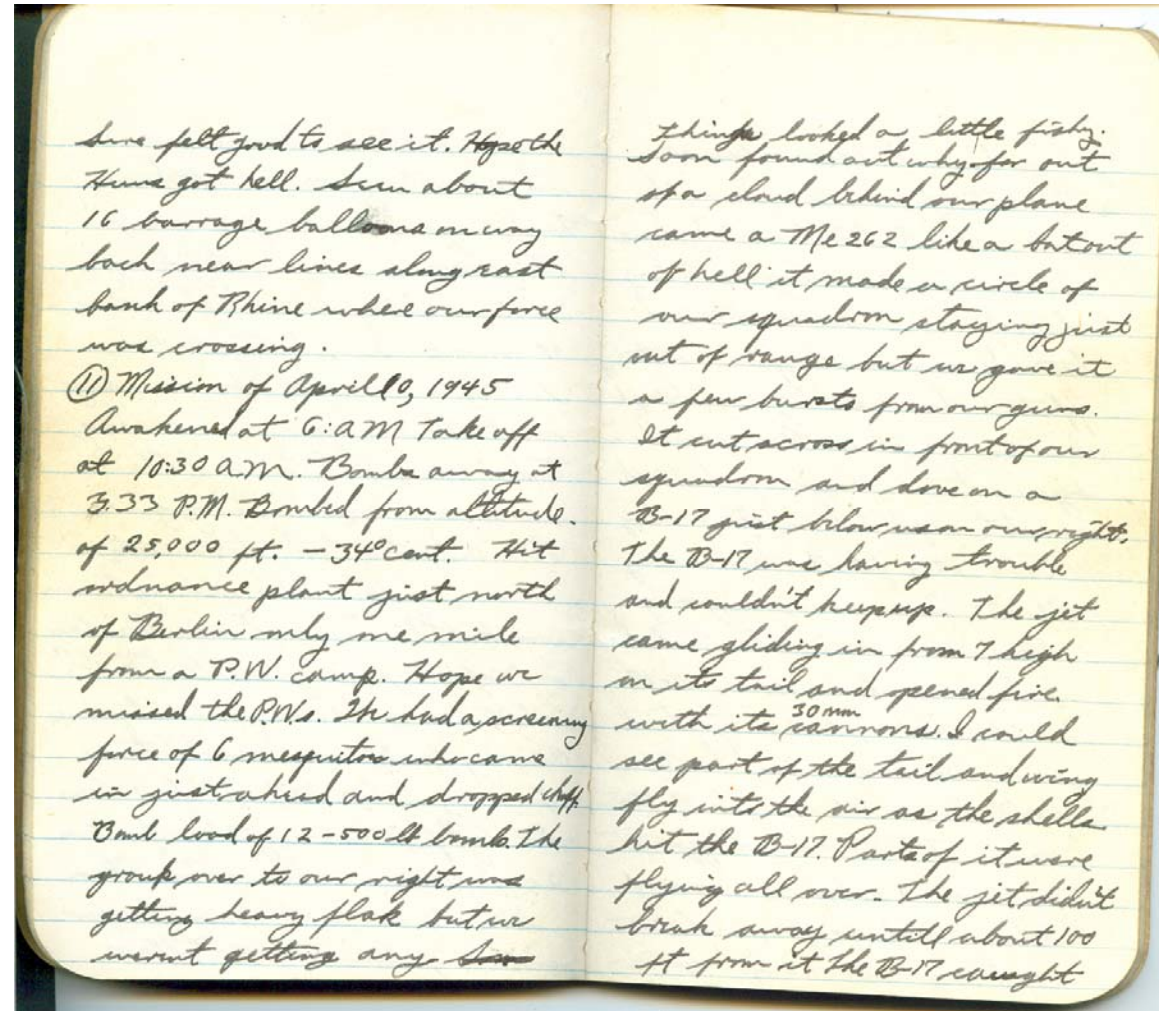 Sure felt good to see it. Hope the
Huns got hell. Seen about
16 barrage balloons on way
back near lines along east
bank of Rhine where our force
was crossing.
⑪ Mission of April 10, 1945
Awakened at 6:AM Take off
at 10:30 A.M. Bombs away at
3:33 P.M. Bombed from altitude.
of 25,000 ft. -34° cent. Hit
ordnance plant just north
of Berlin only one mile
from a P.W. camp. Hope we
missed the P.Ws. We had a screening
force of 6 mesquitos who came
in just ahead and dropped chaff.
Bomb load of 12-500 lb bombs. The
group over to our right was
getting heavy flak but we
wernt getting any
Things looked a little fishy.
Soon found out why for out
of a cloud behind our plane
came a Me 262 like a bat out
of hell it made a circle of
our squadron staying just
out of range but we gave it
a few bursts from our guns.
It cut across in front of our
squadron and dove on a
B-17 just below us on our right.
The B-17 was having trouble
and couldn't keep up. The jet
came gliding in from 7 high
on its tail and opened fire.
with its 30 mm cannons. I could
see part of the tail and wing
fly into the air as the shells
hit the B-17. Parts of it were
flying all over. The jet didn't
break away untill about 100
ft from it the B-17 caught